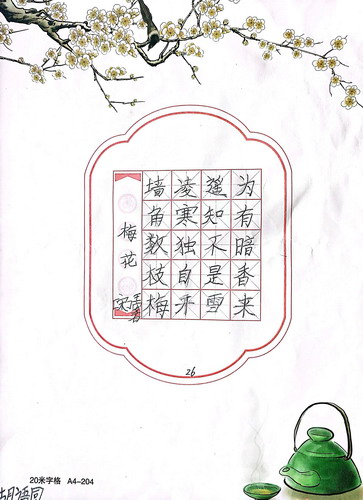 梅花
墙角数枝梅
凌寒独自开
遥知不是雪
为有暗香来
26
20米字格 A4-204